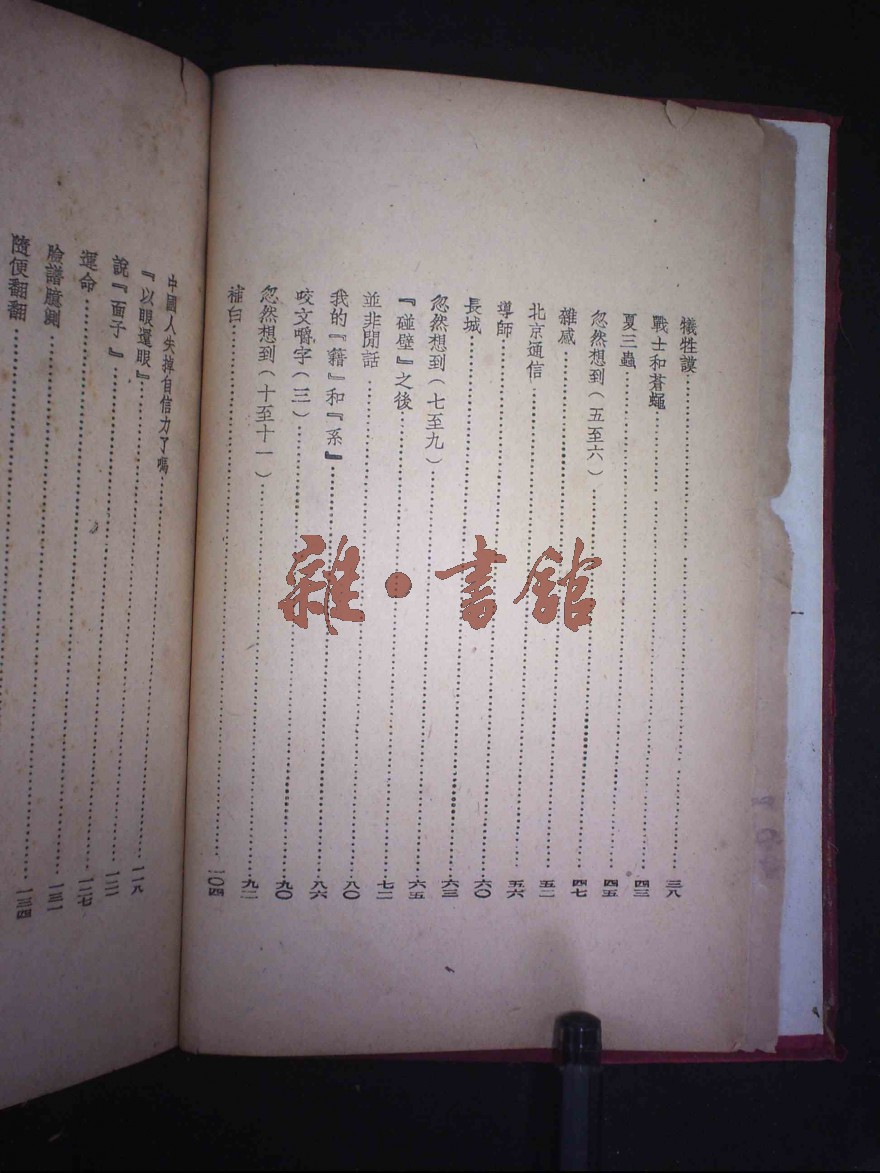 犧牲謨……三八
戰士和蒼蠅……四三
夏三蟲……四五
忽然想到（五至六）……四七
雜感……五二
北京通信……五六
導師……六〇
長城……六三
忽然想到（七至九）……六五
『碰壁』之後……七二
並非閒話……八〇
我的『籍』和『系』……八六
咬文嚼字（三）……九〇
忽然想到（十至十一）……九二
補白……一〇四
中國人失掉自信力了嗎
『以眼還眼』……一一八
說『面子』……一二二
運命……一二七
臉譜臆測……一三一
隨便翻翻……一三四
雜·書館